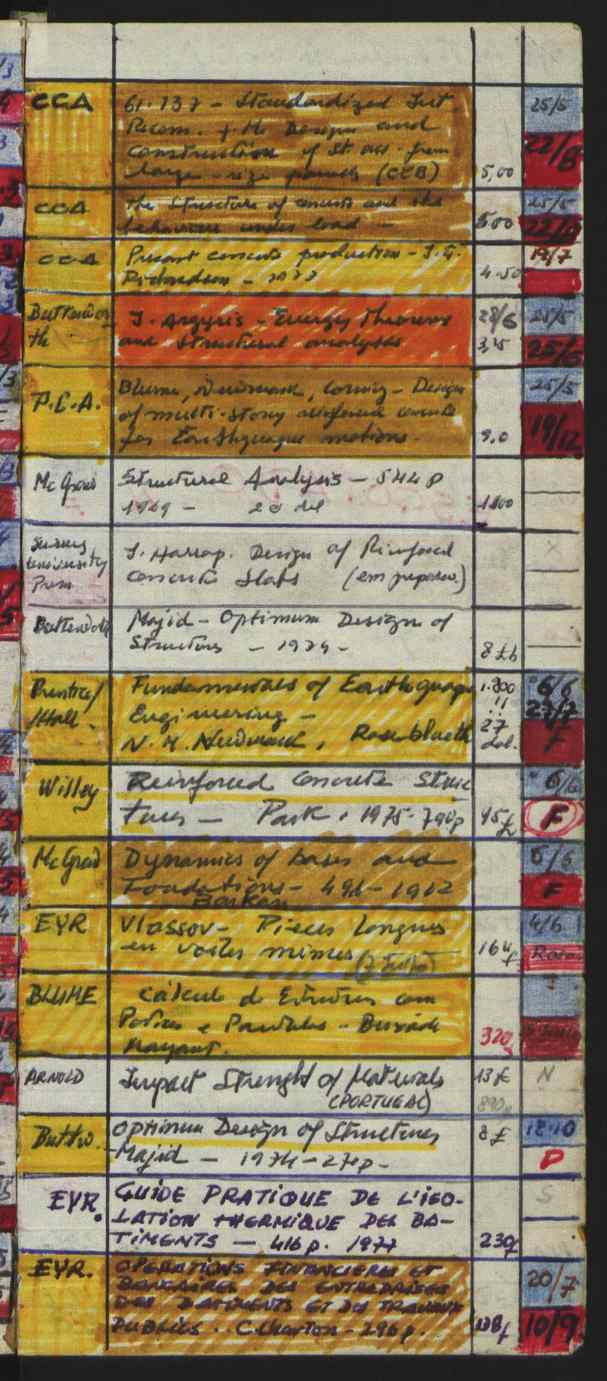 CCA 61.137 - Standardized Int 25/5
Recom. f. the Design and
Construction of St. of 22/8
large-size panels (CEB) 5,00
CCA The Structure of concrete and its 25/5
behaviour under load - 5.00
CCA Precast concrete production - J.G. 19/7
Richardson - 1977 4.50
Butterwor J. Argyris - Energy Theorems 28/6 25/5
th and Structural analysis 3,15 25/6
P.C.A. Blume, Newmark, Corning - Design 25/5
of multi-story reinforced concrete
for Earthquake motions. 9.0 19/12
Mc Graw Structural Analysis - 544 p
1969 - 20 del 1800
Surrey J. Harrop. Design of Rinforced X
University Concrete Slabs (em preparo)
Press
Butterworth Majid - Optimum Design of
Structures - 1974 - 8 £
Prentice/ Fundamentals of Earthquake 1.300 6/6
/Hall. Engineering - !! 27/7
N. M. Newmark, Rosenblueth 27 dol. F
Willey Reinforced Concrete Struc 6/6
tures - Park. 1975 - 790p £ F
McGraw Dynamics of bases and 6/6
Foundations - 1962 F
Barkan
EYR Vlassov - Pieces Longues 4/6
en voiles minces 164 f
BLUME Calculo de com
Porticos e - 320
ARNOLD Impact Strenght of Materials 13 £ N
(PORTUGAL)
Buttw. Optimum Design of Structures 8 £ 18.10
Majid - 1974 - P
EYR. GUIDE PRATIQUE DE L'ISO- S
LATION THERMIQUE DES BA-
TIMENTS - 416 p. 1977 230f
EYR. OPERATIONS FINANCIERES ET 20/7
BANCAIRES DES ENTREPRISES
DES BATIMENTS ET DES TRAVAUX
PUBLICS. C. Charton - 296 p. 138f 10/9